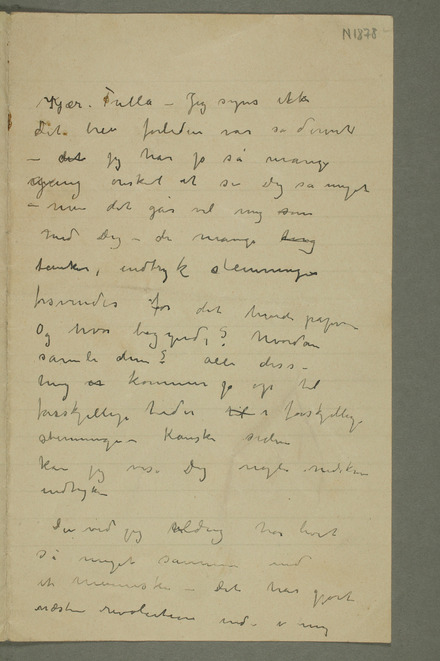 N1878
Kjær. Tulla – Jeg syns ikke
dit brev forleden var så dumt
– det jeg har jo så mange
gang ønsket at si Dig så meget
– men det går vel mig som
med Dig – de mange ting
tanker, indtryk stemninger
forsvinder for det hvide papir
Og hvor begynde? Hvordan
samle dem? alle diss–
ting er kommer jo op til
forskjellige tider til i forskjellige
stemninger Kanske siden
kan jeg vise Dig nogle nedskrevne
indtryk
Du ved jeg aldrig har levet
så meget sammen med
et menneske – det har gjort
næsten revolution inde i mig